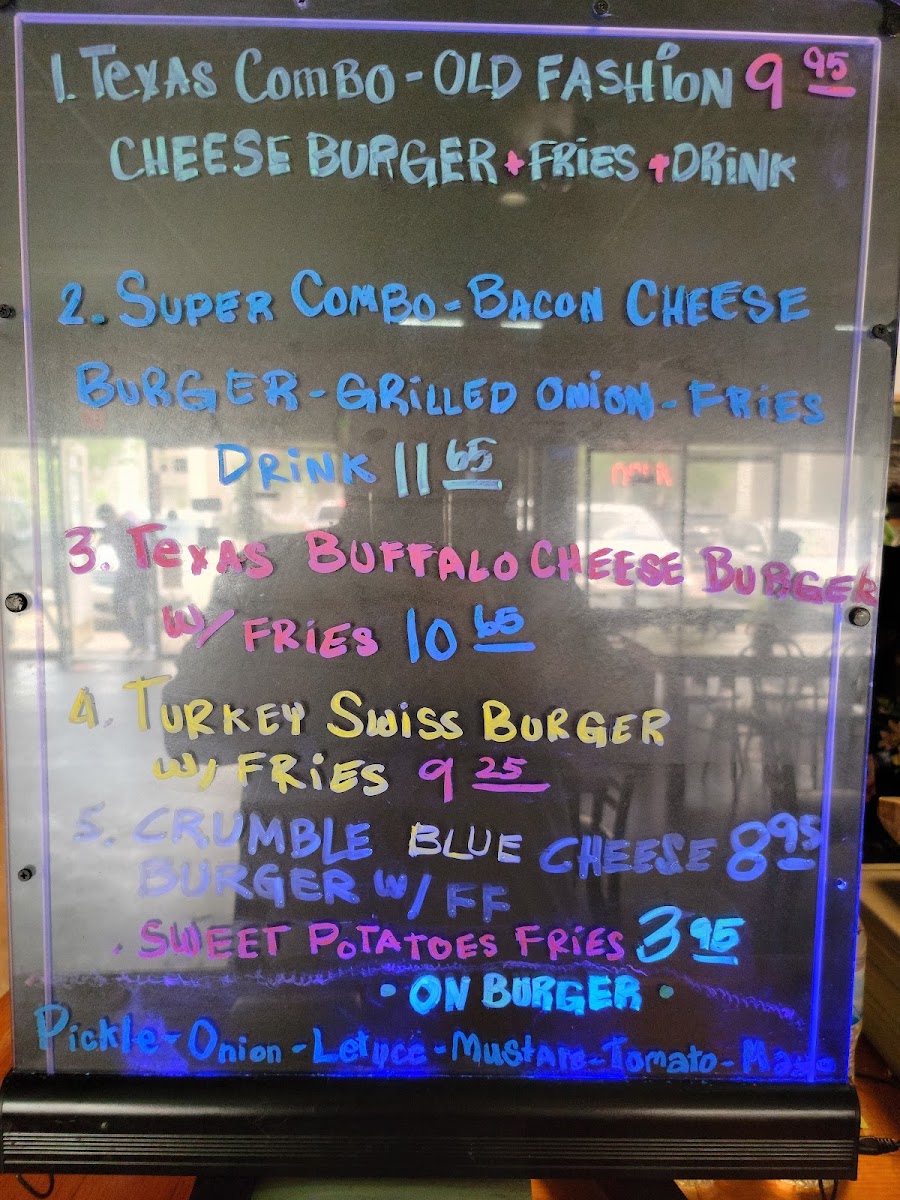 1. TEXAS COMBO - OLD FASHION 9 95
CHEESE BURGER + FRIES + DRINK
2. SUPER COMBO - BACON CHEESE
BURGER - GRILLED ONION - FRIES
DRINK 11 65
3. TEXAS BUFFALO CHEESE BURGER
W/ FRIES 10 65
4. TURKEY SWISS BURGER
W/ FRIES 9 25
5. CRUMBLE BLUE CHEESE 8 95
BURGER W/ FF
. SWEET POTATOES FRIES 3 95
• ON BURGER •
Pickle - Onion - Letucc - Mustard - Tomato - Mayo